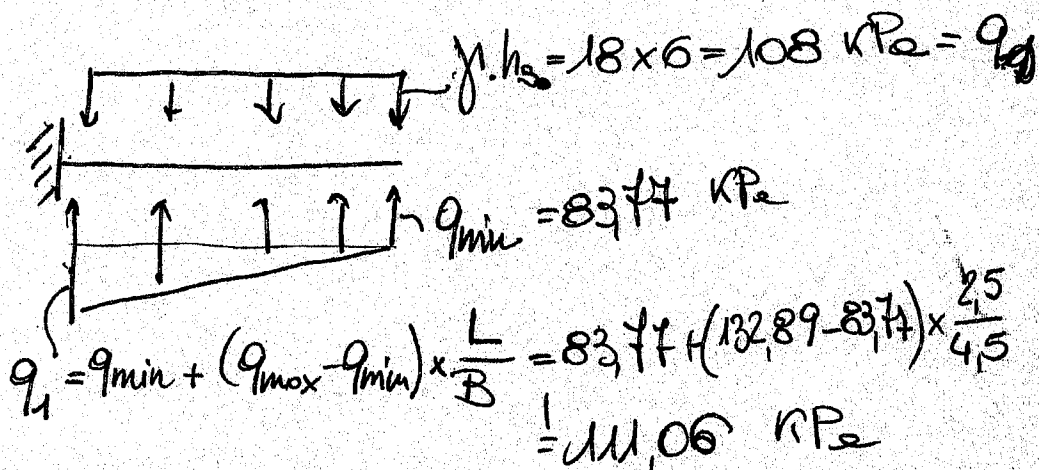 γ.h₃ = 18 × 6 = 108 KPa = q
qmin = 83,77 KPa
q₁ = qmin + (qmax - qmin) × L/B = 83,77 + (132,89 - 83,77) × 2,5/4,5
= 111,06 KPa